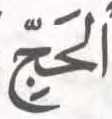 اَلْحَجِّ